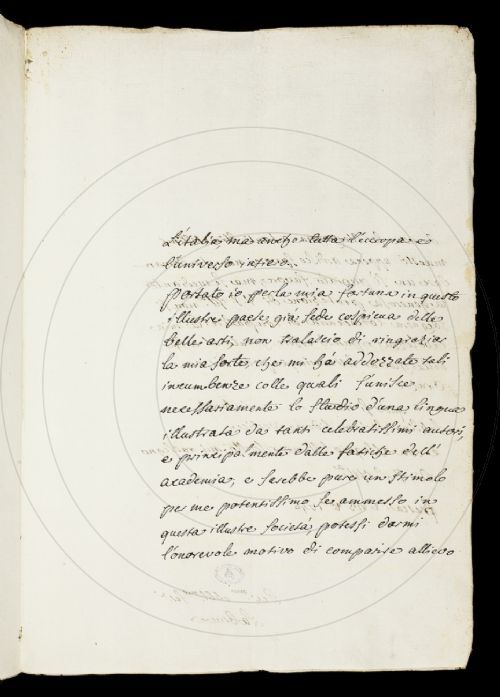 L'italia, ma anche tutta l'europa e
l'universo intiero.
Portato io per la mia fortuna in questo
illustre paese, già sede cospicua delle
belle arti, non tralascio di ringraziar
la mia sorte, che mi hà addossate tali
incumbenze colle quali s'unisce
necessariamente lo studio d'una lingua
illustrata da tanti celebratissimi autori,
e principalmente dalle fatiche dell'
academia, e sarebbe pure un stimolo
per me potentissimo se ammesso in
questa illustre società, potessi darmi
l'onorevole motivo di comparire allievo